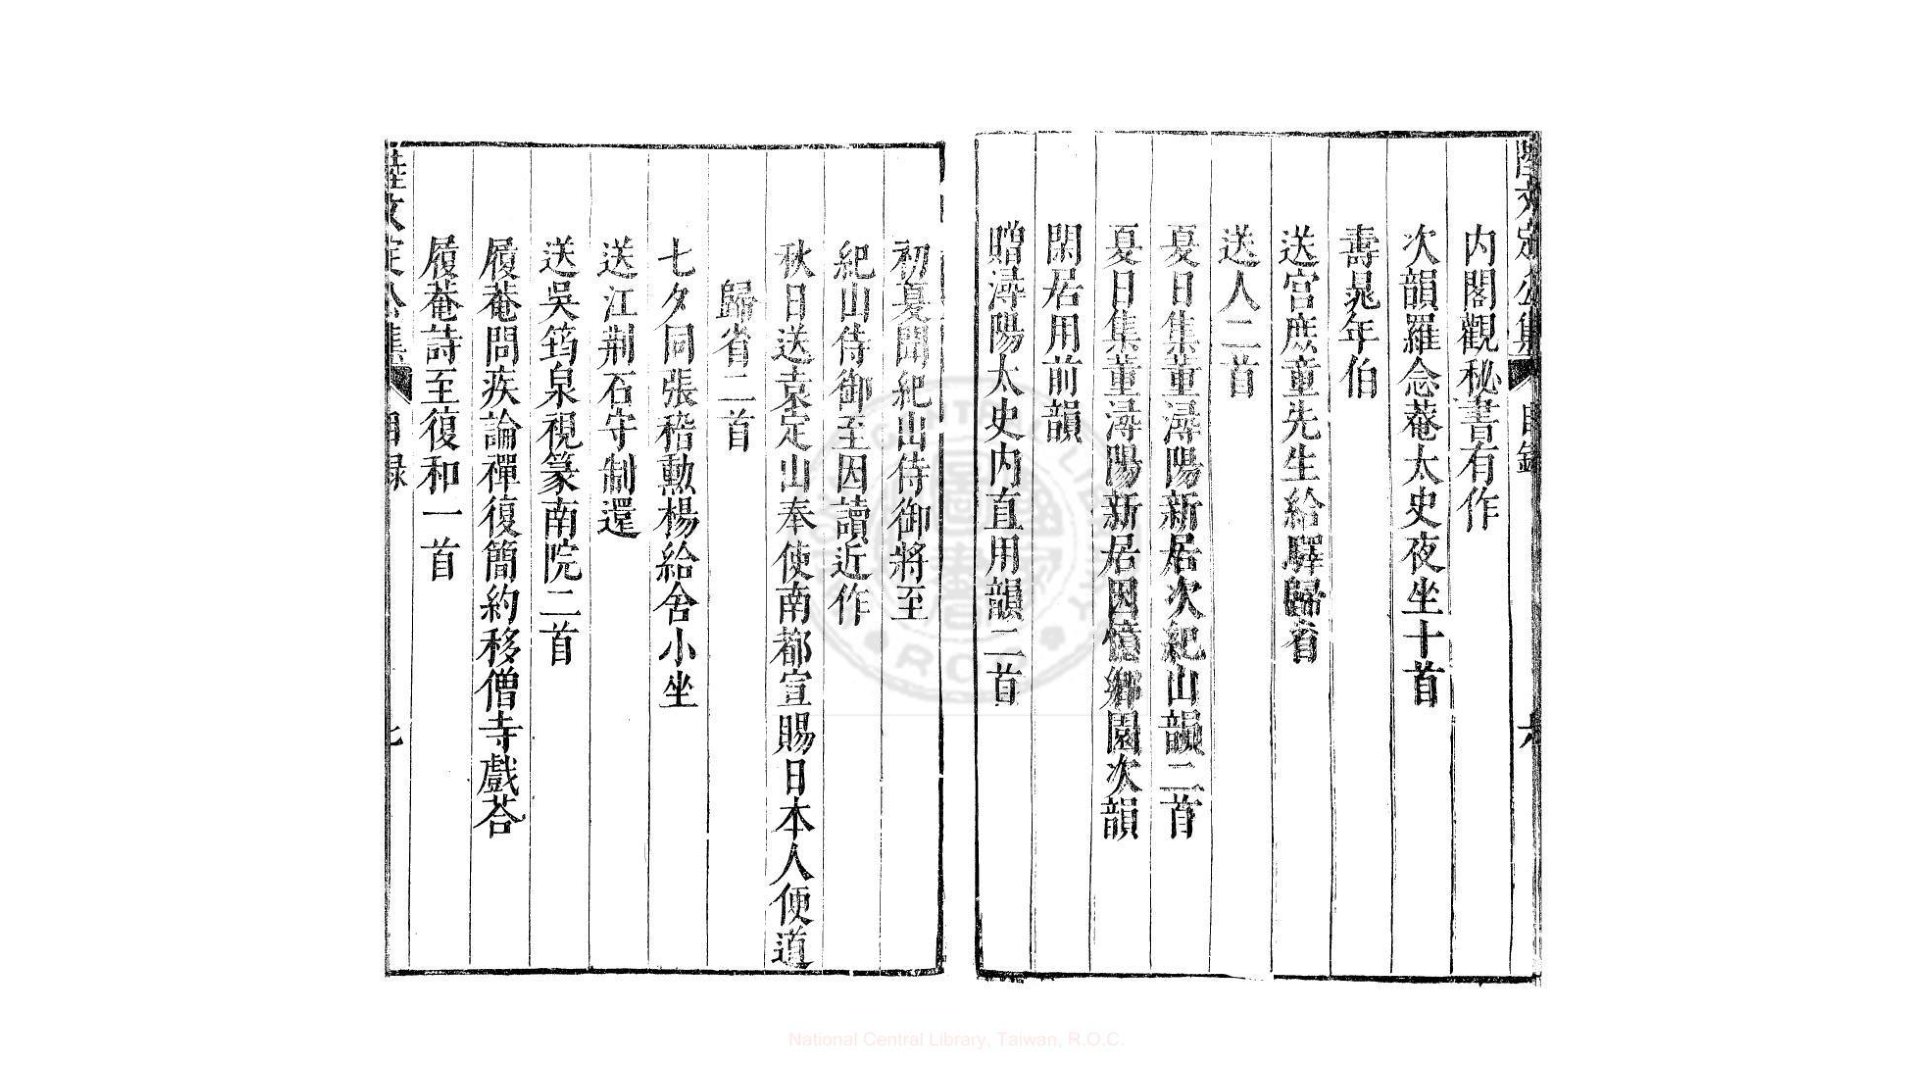 陸文定公集
目錄
六
内閣觀秘書有作
次韻羅念菴太史夜坐十首
壽晁年伯
送宫庶童先生給驛歸省
送人二首
夏日集董潯陽新居次紀山韻二首
夏日集董潯陽新居因憶鄉園次韻
閑居用前韻
贈潯陽太史内直用韻二首
初夏聞紀山侍御將至
紀山侍御至因讀近作
秋日送袁定山奉使南都宣賜日本人便道
歸省二首
七夕同張稽勳楊給舍小坐
送江荆石守制還
送吳筠泉視篆南院二首
履菴問疾論禪復簡約移僧寺戲荅
履菴詩至復和一首
陸文定公集
目録
七
National Central Library, Taiwan, R.O.C.